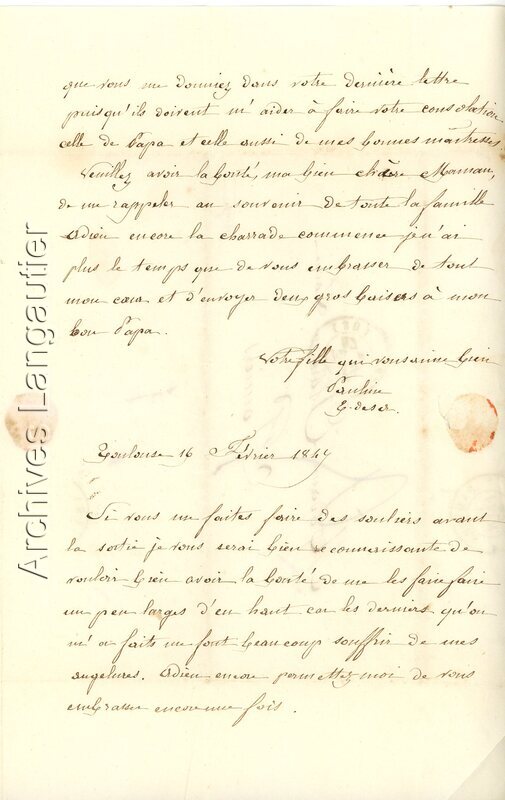 que vous me donniez dans votre dernière lettre
puisqu'ils doivent m'aider à faire votre consolation
celle de Papa et celle aussi de mes bonnes maîtresses.
Veuillez avoir la bonté, ma bien chère Maman,
de me rappeler au souvenir de toute la famille
adieu encore la charrade commence je n'ai
plus le temps que de vous embrasser de tout
mon cœur et d'envoyer deux gros baisers à mon
bon Papa.
Votre fille qui vous aime bien
Pauline
Toulouse 16 Février 1849
Si vous me faites faire des souliers avant
la sortie je vous serai bien reconnaissante de
vouloir bien avoir la bonté de me les faire faire
un peu larges d'en haut car les derniers qu'on
m'a faits me font beaucoup souffrir de mes
angelures. Adieu encore permettez moi de vous
embrasser encore une fois.
Archives Langautier